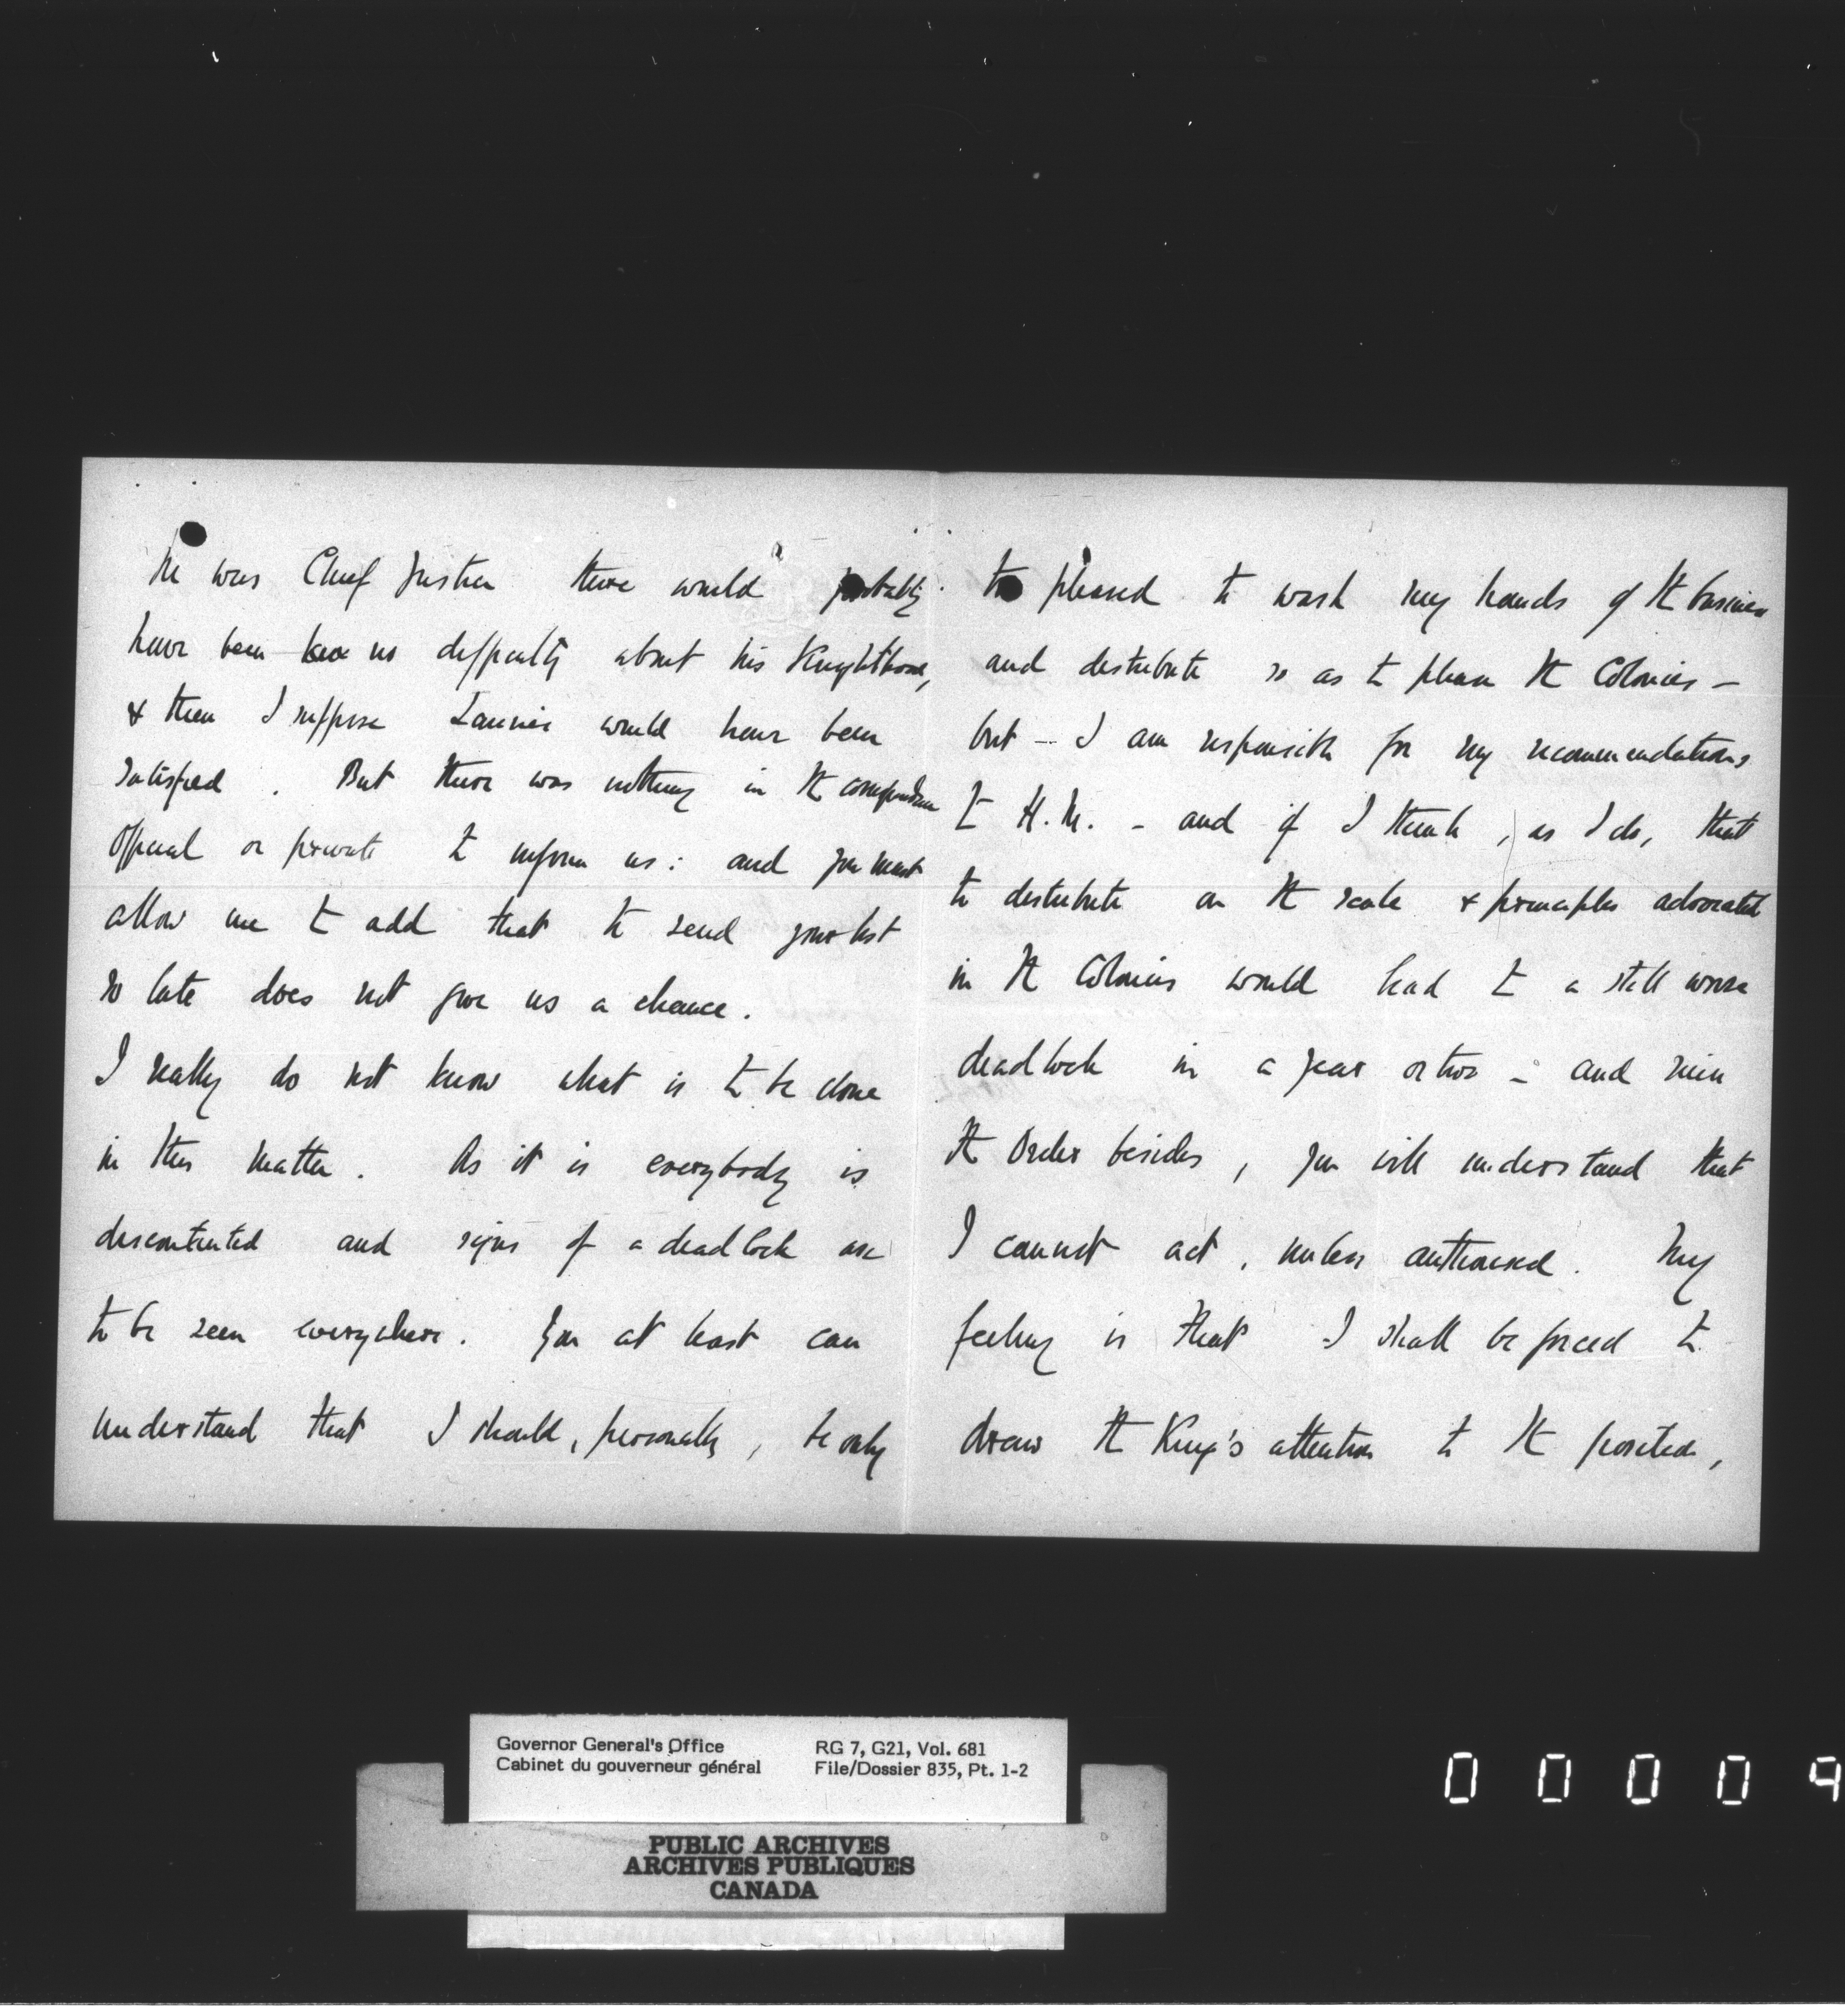 he was Chief Justice there would probably
have been no difficulty about his Knighthood,
& then I suppose Laurier would have been
satisfied. But there was nothing in the correspondence
official or private to inform us: and you must
allow me to add that to send your list
so late does not give us a chance.
I really do not know what is to be done
in this matter. As it is everybody is
discontented and signs of a deadlock are
to be seen everywhere. You at least can
understand that I should, personally, be only
too pleased to wash my hands of the business
and distribute so as to please the Colonies –
but – I am responsible for my recommendations
to H.M. – and if I think, as I do, that
to distribute on the scale & principles advocated
in the Colonies would lead to a still worse
deadlock in a year or two – and ruin
the Order besides, you will understand that
I cannot act, unless authorised. My
feeling is that I shall be forced to
draw the King's attention to the position,
Governor General's Office RG 7, G21, Vol. 681
Cabinet du gouverneur général File/Dossier 835, Pt. 1-2
PUBLIC ARCHIVES
ARCHIVES PUBLIQUES
CANADA
0 0 0 0 9